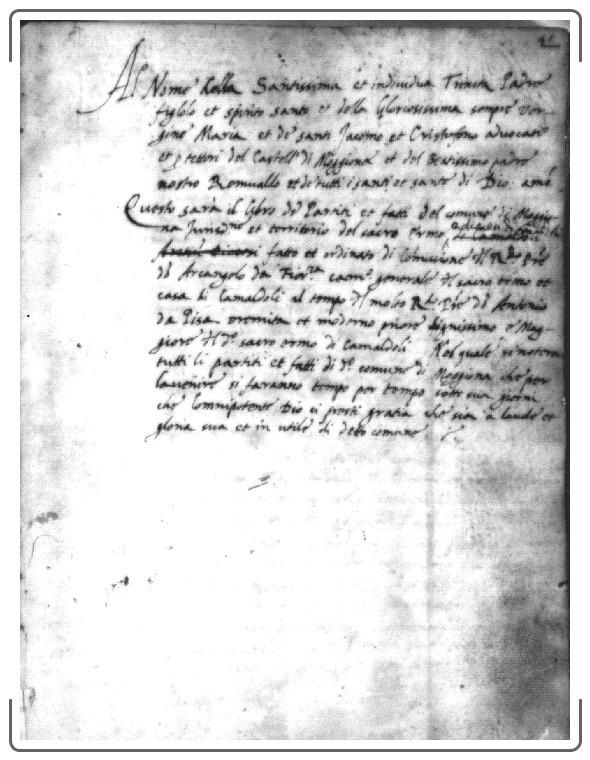 Al Nome della Santissima et individua Trinita Padre
figliolo et spirito santo et della Gloriosissima sempre ver
gine Maria et de santi Jacomo et Cristofano advocati
et ptettori del Castello di Moggiona et del Beatissimo padre
nostro Romualdo et de tutti i santi et sante di Dio: amē
Questo sarà il libro de Partiti et fatti del comune di Moggio
na Jurisdne et territorio del sacro Ermo di Camaldoli
fatto et ordinato di Comissione d'l Rdo Pre
dō Arcangelo da Fiorza camro generale d'l sacro ermo et
casa di Camaldoli al tempo d'l molto Rdo Pre dō Antonio
da Pisa eremita et moderno priore dignissimo e Mag-
giore d'l do sacro ermo di Camaldoli Nel quale si notera
tutti li partiti et fatti di do comune di Moggiona che per
lavenire si faranno tempo per tempo sotti sua giorni
che lomnipotente Dio ci presti gratia che sia a laude et
gloria sua et in utile di detto comune